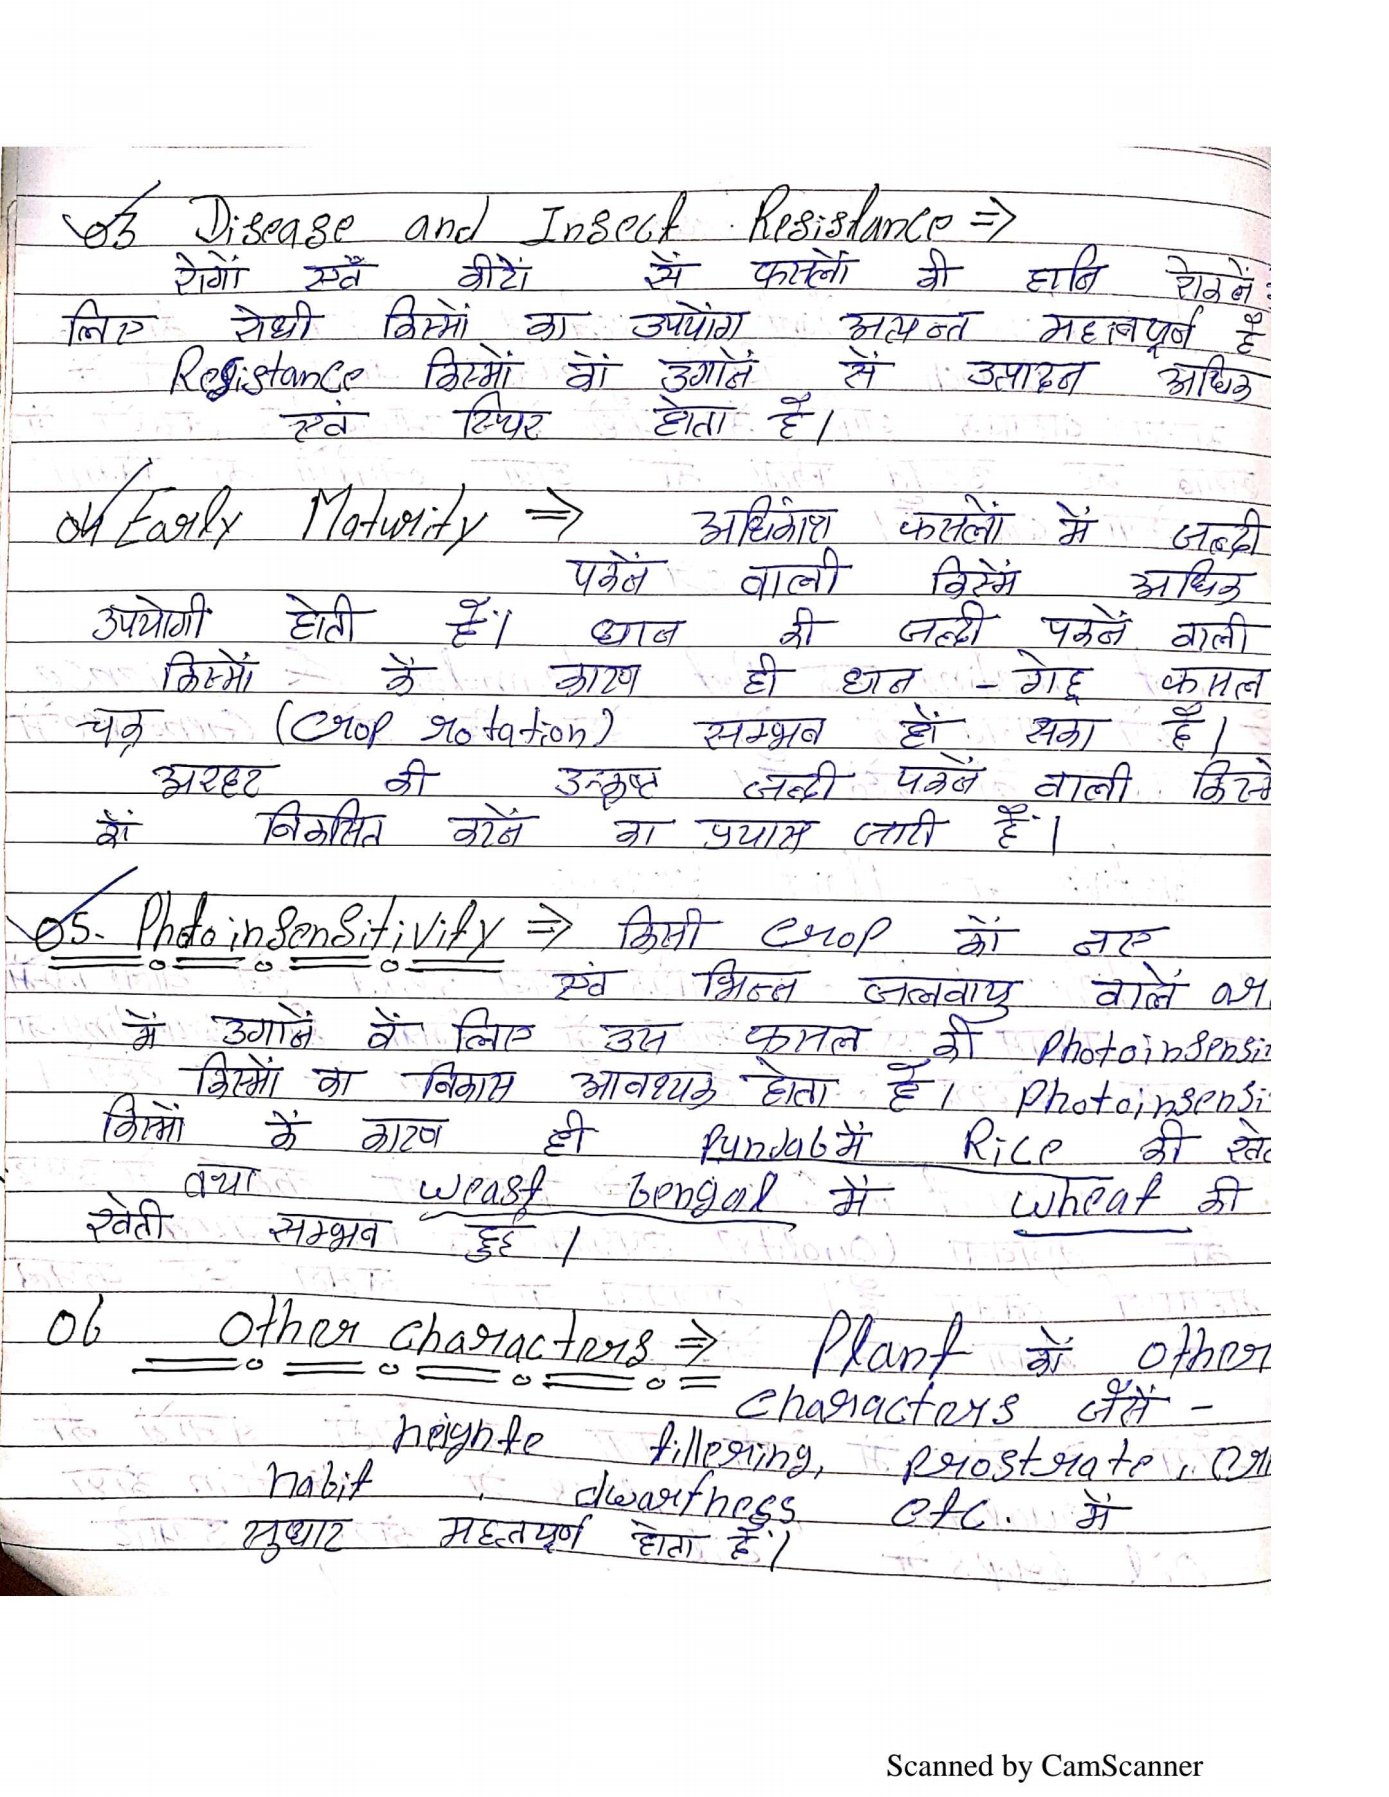 03 Disease and Insect Resistance ⇒
रोगों एवं कीटों सें फसलों की हानि रोकनें
लिए रोधी किस्मों का उपयोंग अत्यन्त महत्वपूर्ण है
Resistance किस्मों कों उगानें सें उत्पादन अधिक
एवं स्थिर होता है।
04 Early Maturity ⇒ अधिकांश फसलों में जल्दी
पकनें वाली किस्में अधिक
उपयोगी होती हैं। धान की जल्दी पकनें वाली
किस्मों कें कारण ही धान - गेहू फसल
चक्र (Crop rotation) सम्भव हों सका है।
अरहर की उत्कृष्ट जल्दी पकनें वाली किस्में
कों विकसित करनें का प्रयास जारी हैं।
05. Photoinsensitivity ⇒ किसी crop कों नए
एवं भिन्न जलवायु वालें
में उगानें कें लिए उस फसल की Photoinsensi
किस्मों का विकास आवश्यक होता है। Photoinsensi
किस्मों कें कारण ही Punjab में Rice की
तथा weast bengal में wheat की
खेती सम्भव हुई।
06 Other characters ⇒ Plant कों other
characters जैसें -
heighte tillering, prostrate,
habit, dwarfness etc. में
सुधार महत्तपूर्ण होता हैं।
Scanned by CamScanner